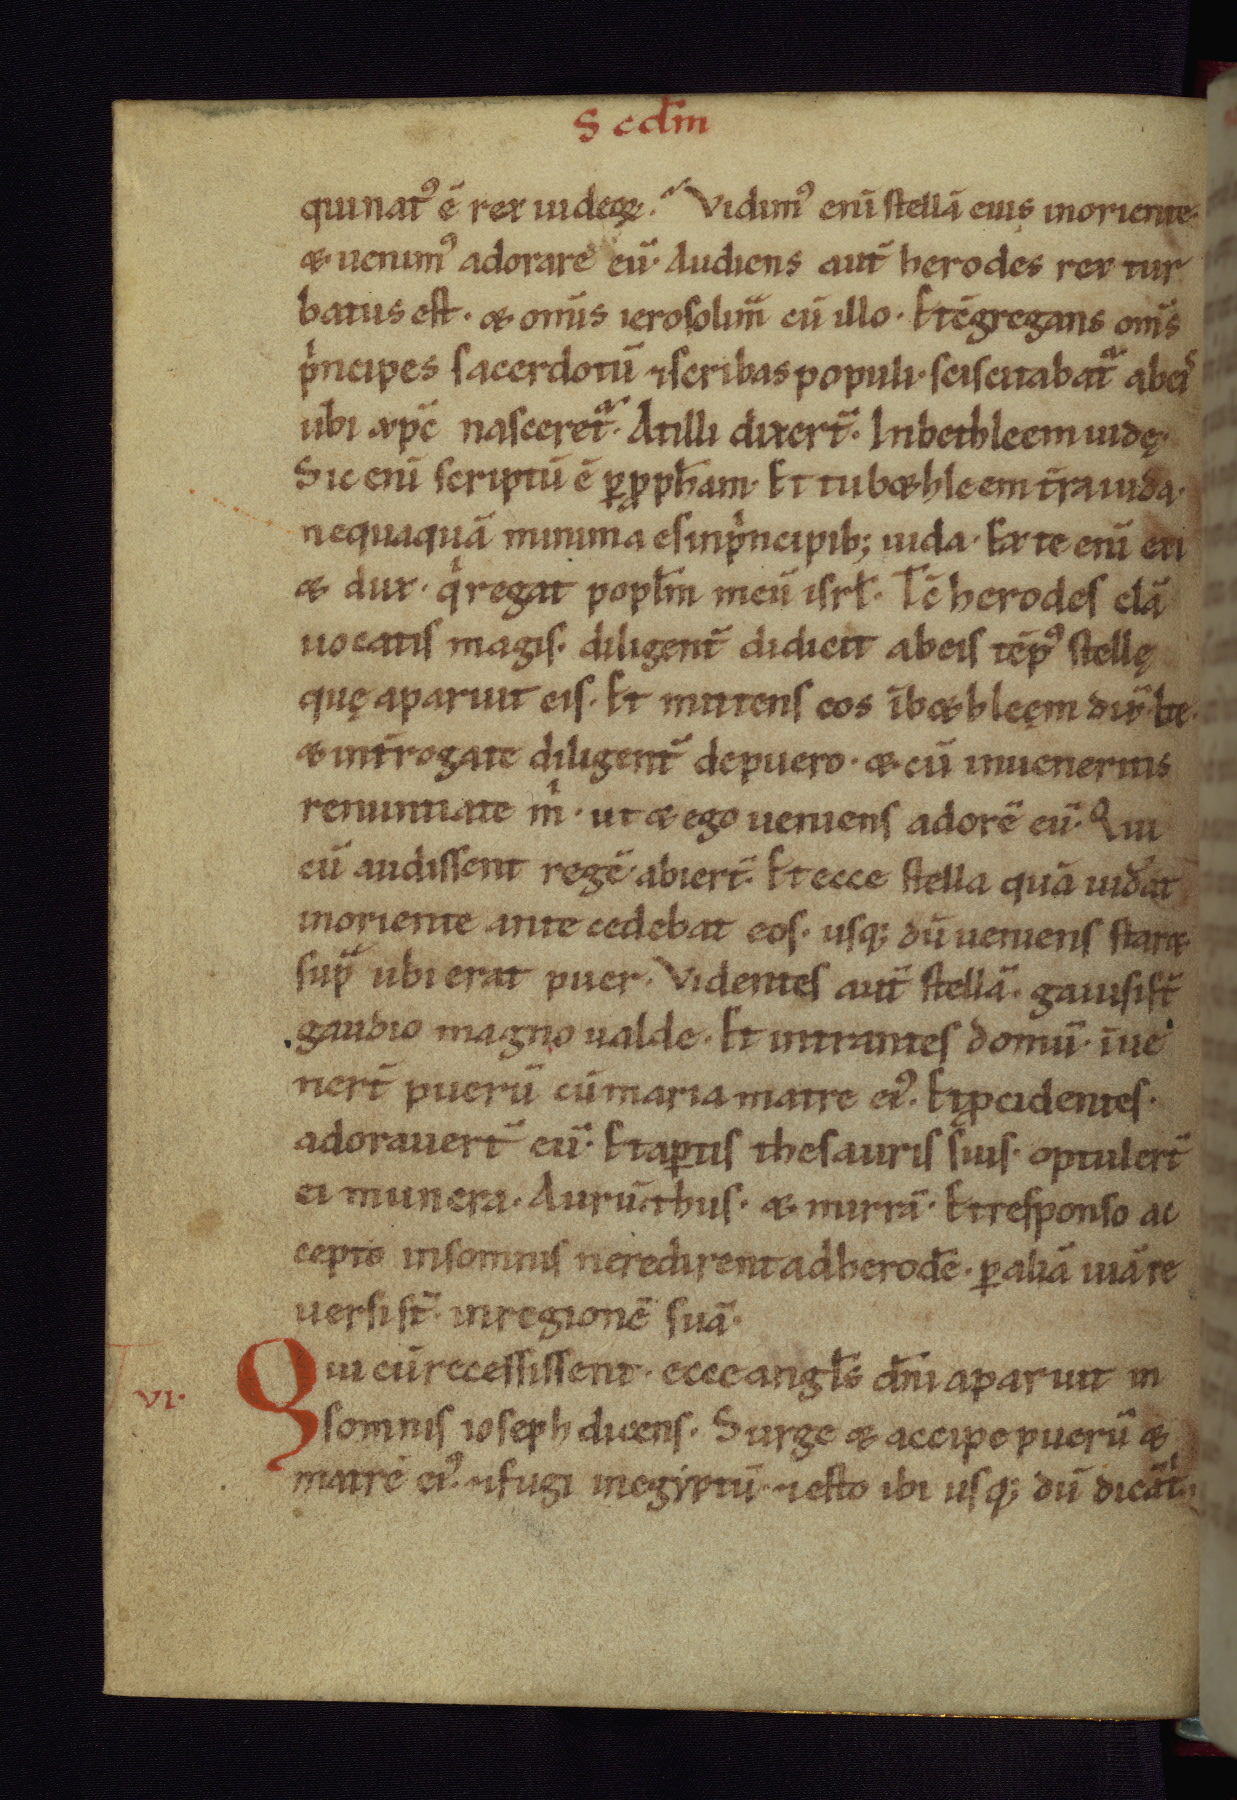 Scdm̄
qui nat᾽ ē rex iudeoꝝ. Vidim᾽ eni᷑ stellā eius in oriente.
& uenim᾽ adorare eū. Audiens aut̄ herodes rex tur
batus est. & om̄s ierosolim̄ cū illo. Et c̄gregans om̄s
pͥncipes sacerdotū ⁊ scribas populi. sciscitabat᷑ ab eis
ubi xp̄c nasceret᷑. At illi dixer̄t. In bethleem iudę.
Sic enī scriptū ē ꝑ ꝓph̄am. Et tu b&hleem t̄ra iuda.
nequaquā minima es in pͥncipib; iuda. Ex te enī exi
& dux. qͥ regat popl̄m meū isrl̄. Tc̄ herodes clā
uocatis magis. diligent̄ didicit ab eis tēp᾽ stellę
quę aparuit eis. Et mittens eos ī b&hleem dix̄. Ite.
& int̄rogate diligent̄ de puero. & cū inueneritis
renuntiate mͥ. ut & ego ueniens adorē eū. Qui
cū audissent regē. abier̄t. Et ecce stella quā uid̄ant
in oriente ante cedebat eos. usq; dū ueniens star&
sup̄ ubi erat puer. Videntes aut̄ stellā. gauisi st̄
gaudio magno ualde. Et intrantes domū. īue
ner̄t puerū cū maria matre ei᾽. Et ꝓcidentes.
adorauer̄t eū. Et aꝑtis thesauris suis. optuler̄t
ei munera. Aurū. thus. & mirrā. Et responso ac
cepto in somnis ne redirent ad herodē. ꝑ aliā uiā re
uersi st̄. in regionē suā.
VI.
Qui cū recessissent. ecce angl̄s dn̄i aparuit in
somnis ioseph dicens. Surge & accipe puerū &
matrē ei᾽. ⁊ fugi in egẏptū. ⁊ esto ibi usq; dū dicā t̄.